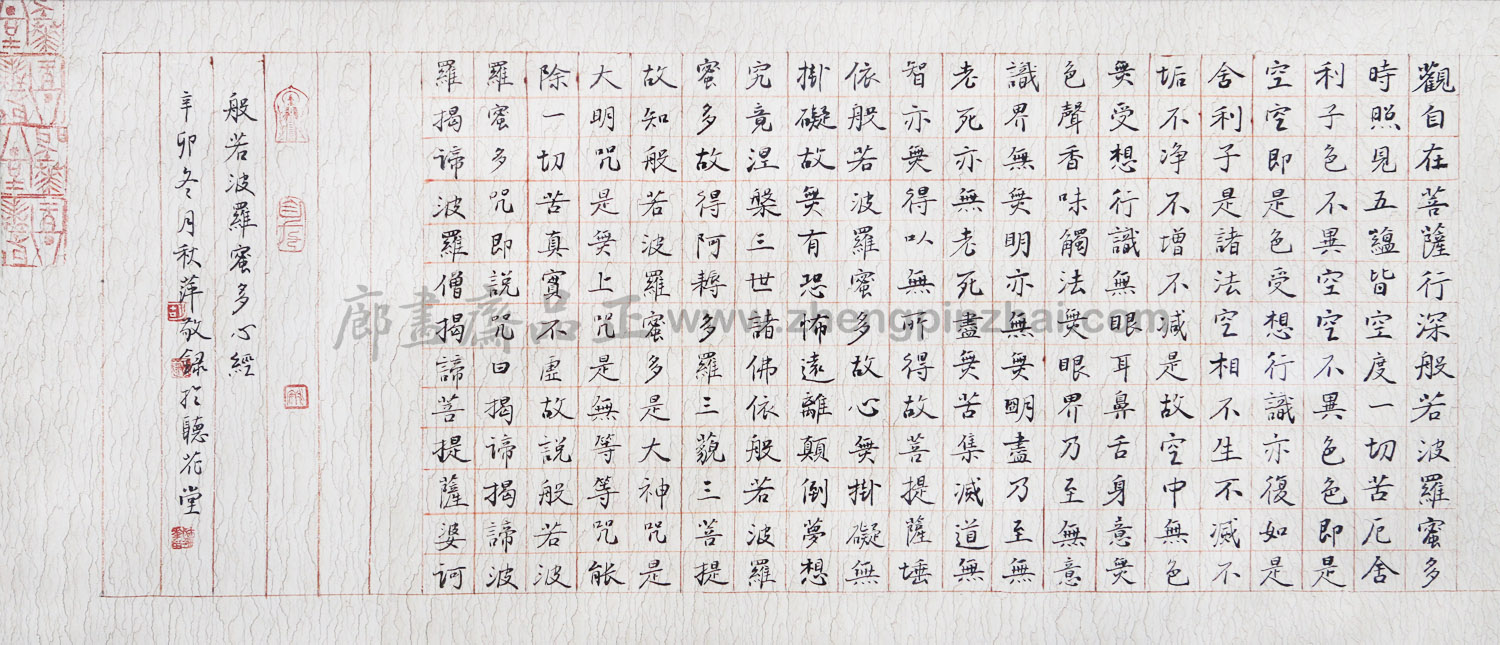 觀自在菩薩行深般若波羅蜜多
時照見五蘊皆空度一切苦厄舍
利子色不異空空不異色色即是
空空即是色受想行識亦復如是
舍利子是諸法空相不生不滅不
垢不净不增不减是故空中無色
無受想行識無眼耳鼻舌身意無
色聲香味觸法無眼界乃至無意
識界無無明亦無無明盡乃至無
老死亦無老死盡無苦集滅道無
智亦無得以無所得故菩提薩埵
依般若波羅蜜多故心無掛礙無
掛礙故無有恐怖遠離顛倒夢想
究竟涅槃三世諸佛依般若波羅
蜜多故得阿耨多羅三藐三菩提
故知般若波羅蜜多是大神咒是
大明咒是無上咒是無等等咒能
除一切苦真實不虛故說般若波
羅蜜多咒即說咒曰揭諦揭諦波
羅揭諦波羅僧揭諦菩提薩婆訶
般若波羅蜜多心經
辛卯冬月秋萍敬錄於聽花堂
廊畫齋品正 www.zhengpinzhai.com